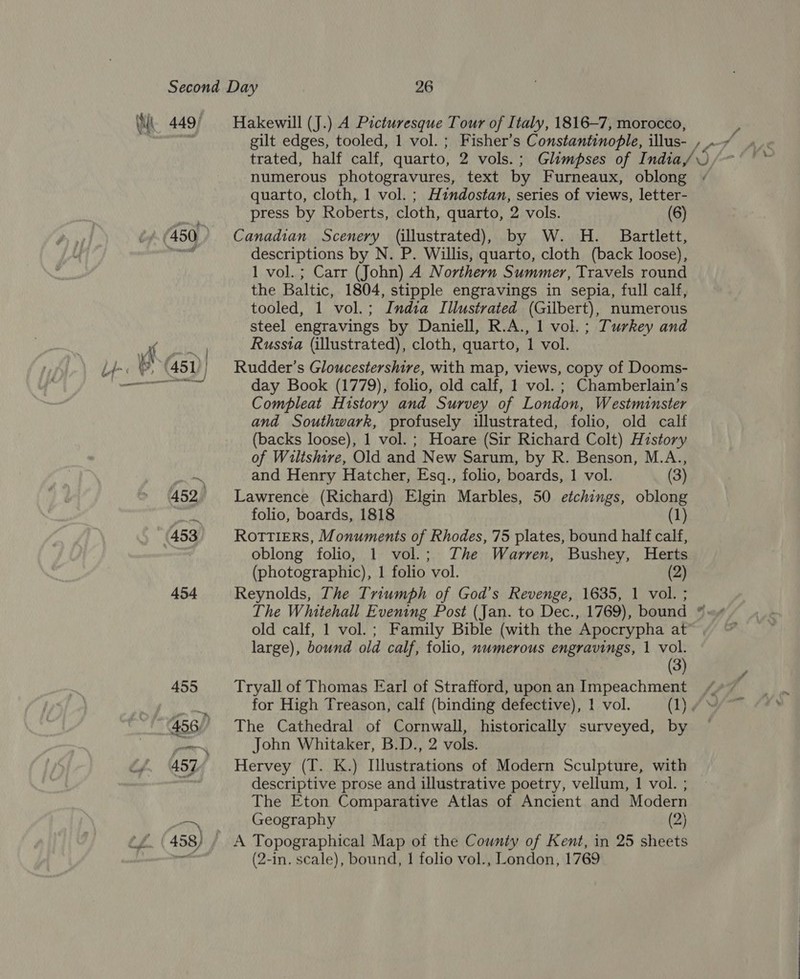 Second Day 26
449 Hakewill (J.) A Picturesque Tour of Italy, 1816-7, morocco,
gilt edges, tooled, 1 vol. ; Fisher's Constantinople, illus-
trated, half calf, quarto, 2 vols. ; Glimpses of India,
numerous photogravures, text by Furneaux, oblong
quarto, cloth, 1 vol. ; Hindostan, series of views, letter-
press by Roberts, cloth, quarto, 2 vols. (6)
450 Canadian Scenery (illustrated), by W. H. Bartlett,
descriptions by N. P. Willis, quarto, cloth (back loose),
1 vol. ; Carr (John) A Northern Summer, Travels round
the Baltic, 1804, stipple engravings in sepia, full calf,
tooled, 1 vol. ; India Illustrated (Gilbert), numerous
steel engravings by Daniell, R.A., 1 vol. ; Turkey and
Russia (illustrated), cloth, quarto, 1 vol.
451 Rudder's Gloucestershire, with map, views, copy of Dooms-
day Book (1779), folio, old calf, 1 vol. ; Chamberlain's
Compleat History and Survey of London, Westminster
and Southwark, profusely illustrated, folio, old calf
(backs loose), 1 vol. ; Hoare (Sir Richard Colt) History
of Wiltshire, Old and New Sarum, by R. Benson, M.A.,
and Henry Hatcher, Esq., folio, boards, 1 vol. (3)
452 Lawrence (Richard) Elgin Marbles, 50 etchings, oblong
folio, boards, 1818 (1)
453 ROTTIERS, Monuments of Rhodes, 75 plates, bound half calf,
oblong folio, 1 vol. ; The Warren, Bushey, Herts
(photographic), 1 folio vol. (2)
454 Reynolds, The Triumph of God's Revenge, 1635, 1 vol. ;
The Whitehall Evening Post (Jan. to Dec., 1769), bound
old calf, 1 vol. ; Family Bible (with the Apocrypha at
large), bound old calf, folio, numerous engravings, 1 vol.
(3)
455 Tryall of Thomas Earl of Strafford, upon an Impeachment
for High Treason, calf (binding defective), 1 vol. (1)
456 The Cathedral of Cornwall, historically surveyed, by
John Whitaker, B.D., 2 vols.
457 Hervey (T. K.) Illustrations of Modern Sculpture, with
descriptive prose and illustrative poetry, vellum, 1 vol. ;
The Eton Comparative Atlas of Ancient and Modern
Geography (2)
458 A Topographical Map of the County of Kent, in 25 sheets
(2-in. scale), bound, 1 folio vol., London, 1769